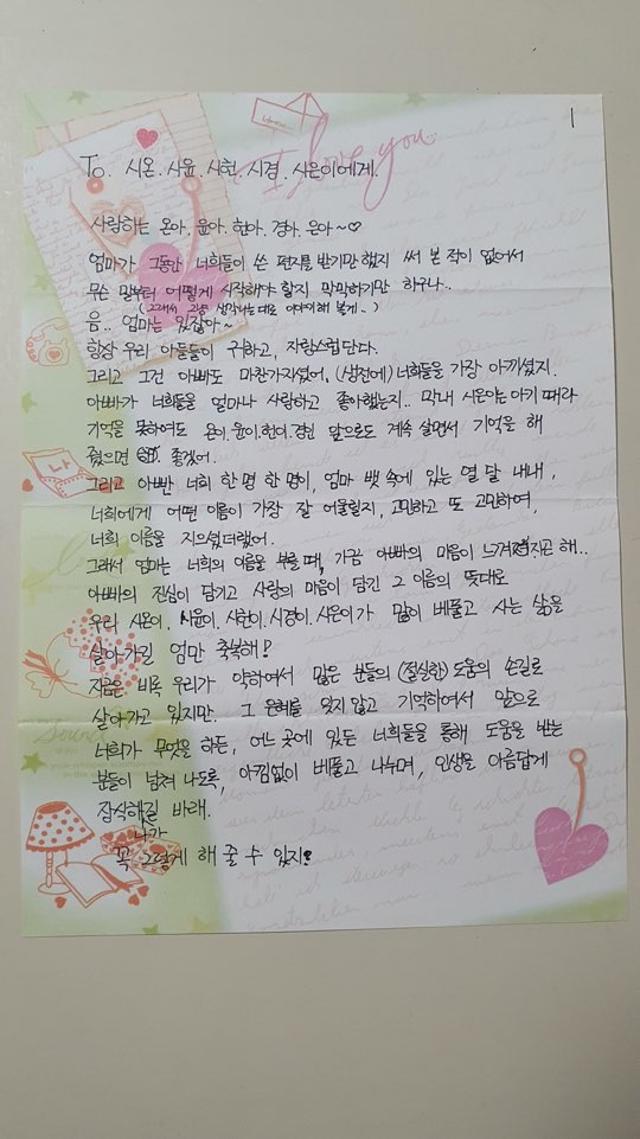 1
I love you
To. 시온.시윤.시현.시경.시은이에게.
사랑하는 온아.윤아.현아.경아.은아~♡
엄마가 그동안 너희들이 쓴 편지를 받기만 했지 써 본 적이 없어서
무슨 말부터 어떻게 시작해야 할지 막막하기만 하구나..
(그래서 그냥 생각나는대로 이야기해 볼게~)
음.. 엄마는 있잖아~
항상 우리 아들들이 귀하고, 자랑스럽단다.
그리고 그건 아빠도 마찬가지셨어. (생전에) 너희들을 가장 아끼셨지.
아빠가 너희들을 얼마나 사랑하고 좋아했는지.. 막내 시은이는 아기 때라
기억을 못하여도 온이.윤이.현이.경인 앞으로도 계속 살면서 기억을 해
줬으면 좋겠어.
그리고 아빤 너희 한 명 한 명이, 엄마 뱃 속에 있는 열 달 내내,
너희에게 어떤 이름이 가장 잘 어울릴지, 고민하고 또 고민하여,
너희 이름을 지으셨더랬어.
그래서 엄마는 너희의 이름을 부를 때, 가끔 아빠의 마음이 느껴지곤 해..
아빠의 진심이 담기고 사랑의 마음이 담긴 그 이름의 뜻대로
우리 시온이. 시윤이.시현이.시경이.시은이가 많이 베풀고 사는 삶을
살아가길 엄만 축복해!
지금은 비록 우리가 약하여서 많은 분들의 (절실한) 도움의 손길로
살아가고 있지만. 그 은혜를 잊지않고 기억하여서 앞으로
너희가 무엇을 하든, 어느 곳에 있든 너희들을 통해 도움을 받는
분들이 넘쳐 나도록, 아낌없이 베풀고 나누며, 인생을 아름답게
장식해나가길 바래.
꼭 그렇게 해 줄 수 있지?